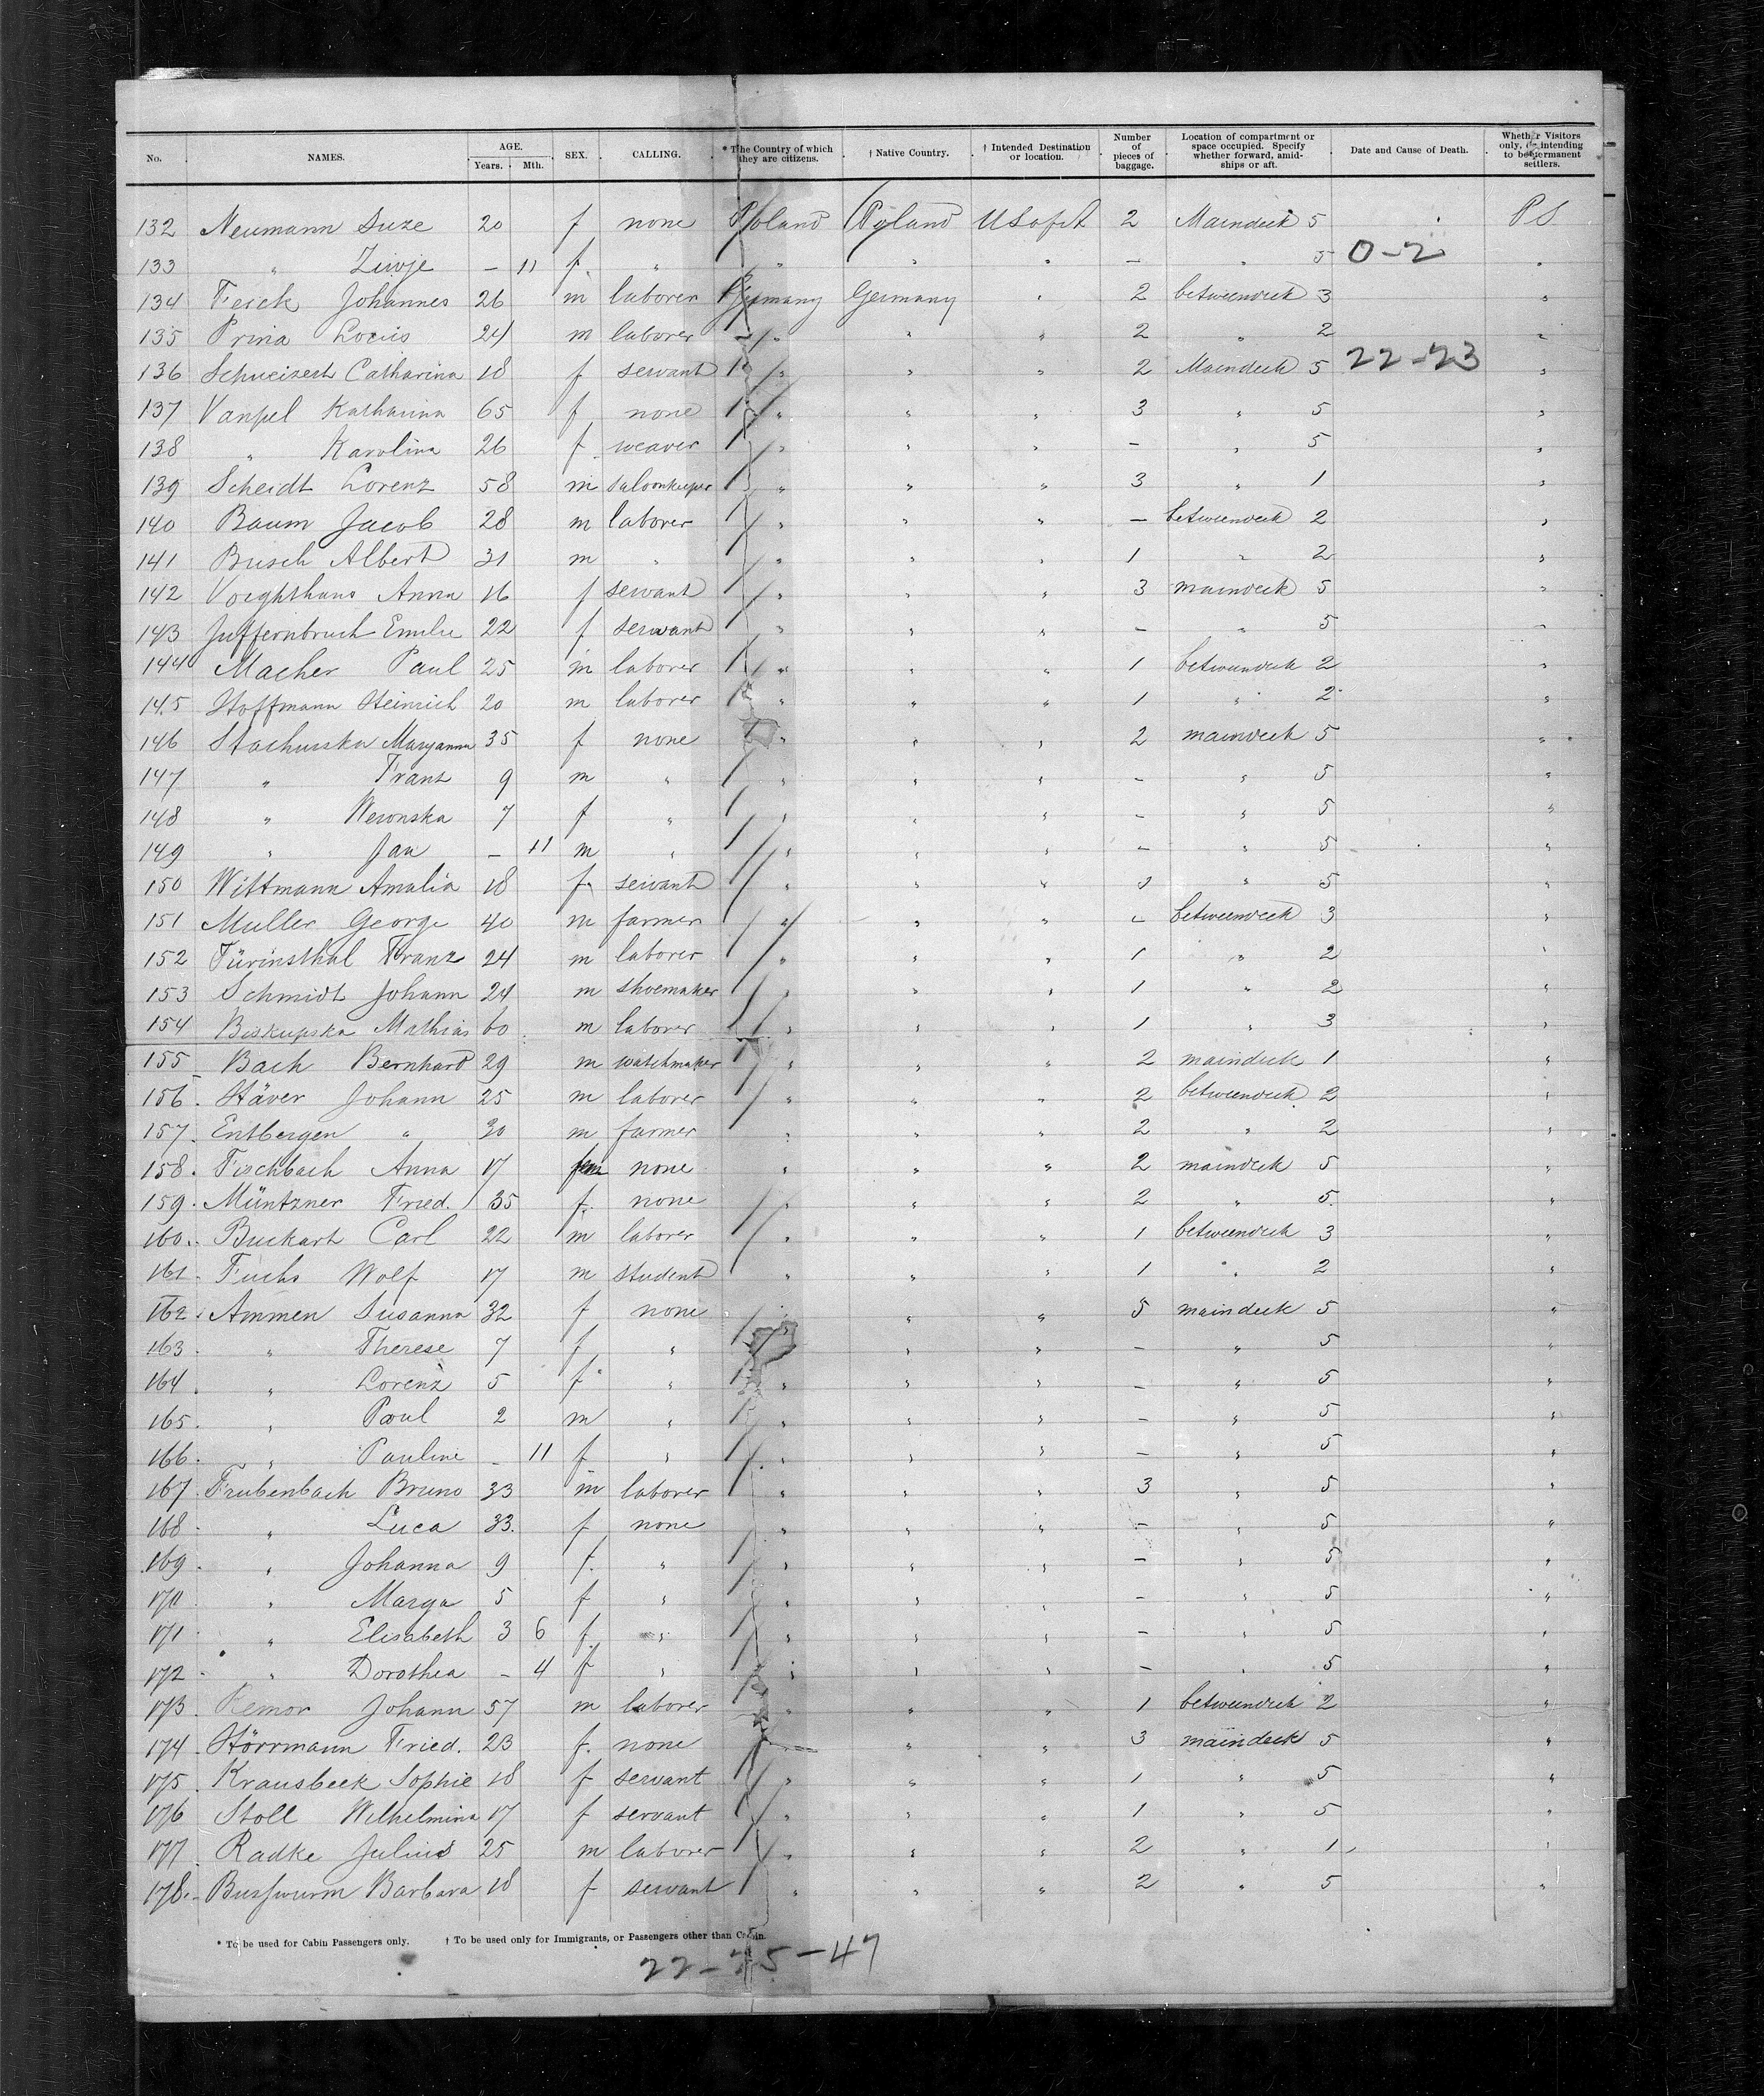 No. NAMES. AGE. Years. Mth. SEX. CALLING. * The Country of which they are citizens. † Native Country. † Intended Destination or location. Number of pieces of baggage. Location of compartment or space occupied. Specify whether forward, amidships or aft. Date and Cause of Death. Whether Visitors only, or intending to be permanent settlers.
132 Neumann Suze 20 f none Poland Poland USofA 2 Maindeck 5 PS
133 " Ziwje – 11 f. " " " " – " 5 0-2 "
134 Ferck Johannes 26 m laborer Germany Germany " 2 betweendeck 3 "
135 Prina Louis 24 m laborer " " " 2 " 2 "
136 Schweizert Catharina 18 f servant " " " 2 Maindeck 5 22-23 "
137 Vanpel Katharina 65 f none " " " 3 " 5 "
138 " Karolina 26 f weaver " " " – " 5 "
139 Scheidt Lorenz 58 m saloonkeeper " " " 3 " 1 "
140 Baum Jacob 28 m laborer " " " – betweendeck 2 "
141 Busch Albert 31 m " " " " 1 " 2 "
142 Voighthans Anna 16 f servant " " " 3 maindeck 5 "
143 Juffernbruch Emilie 22 f servant " " " – " 5 "
144 Macher Paul 25 m laborer " " " 1 betweendeck 2 "
145 Hoffmann Heinrich 20 m laborer " " " 1 " 2 "
146 Stachurska Maryanna 35 f none " " " 2 maindeck 5 "
147 " Franz 9 m " " " " – " 5 "
148 " Weronska 7 f " " " " – " 5 "
149 " Jan – 11 m " " " " – " 5 "
150 Wittmann Amalia 18 f. servant " " " 1 " 5 "
151 Muller George 40 m farmer " " " – betweendeck 3 "
152 Türinsthal Franz 24 m laborer " " " 1 " 2 "
153 Schmidt Johann 24 m shoemaker " " " 1 " 2 "
154 Biskupska Mathias 60 m laborer " " " 1 " 3 "
155 Bach Bernhard 29 m watchmaker " " " 2 maindeck 1 "
156. Häver Johann 25 m laborer " " " 2 betweendeck 2 "
157. Entbergen " 30 m farmer " " " 2 " 2 "
158. Fischbach Anna 17 fem none " " " 2 maindeck 5 "
159. Müntzner Fried. 35 f. none " " " 2 " 5. "
160. Buckart Carl 22 m laborer " " " 1 betweendeck 3 "
161. Fuchs Wolf 17 m student " " " 1 " 2 "
162. Ammen Susanna 32 f none " " " 5 maindeck 5 "
163. " Therese 7 f " " " " – " 5 "
164. " Lorenz 5 f " " " " – " 5 "
165. " Paul 2 m " " " " – " 5 "
166. " Pauline – 11 f " " " " – " 5 "
167. Trubenbach Bruno 33 m laborer " " " 3 " 5 "
168. " Luca 33. f none " " " – " 5 "
169. " Johanna 9 f. " " " " – " 5 "
170 " Marga 5 f " " " " – " 5 "
171 " Elisabeth 3 6 f. " " " " – " 5 "
172. " Dorothea – 4 f " " " " – " 5 "
173. Remor Johann 57 m laborer " " " 1 betweendeck 2 "
174. Hörrmann Fried. 23 f. none " " 3 maindeck 5 "
175. Krausbeck Sophie 18 f servant " " " 1 " 5 "
176 Stoll Wilhelmina 17 f servant " " " 1 " 5 "
177. Radke Julius 25 m laborer " " " 2 " 1 "
178. Busswurm Barbara 18 f servant " " " 2 " 5 "
* To be used for Cabin Passengers only. † To be used only for Immigrants, or Passengers other than Cabin.
22-25-47